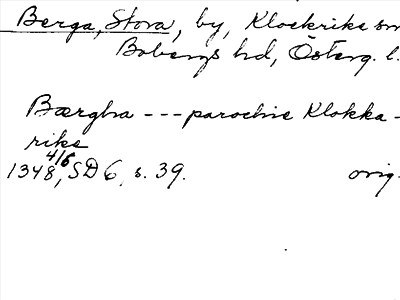 Berga, Stora, by, Klockrike sn
Bobergs hd, Österg. l.
Bærgha --- parochie Klokka-
rike
1348 4/6, SD 6, s. 39. orig.